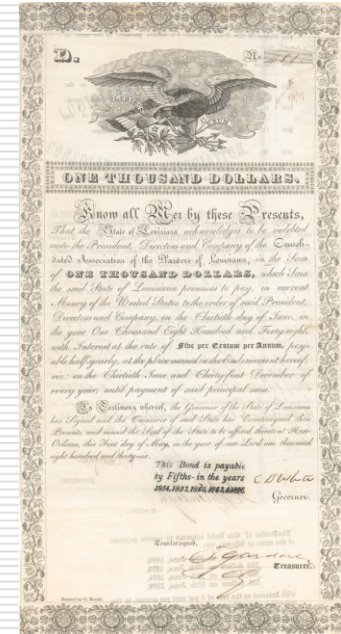 D.
No.
ONE THOUSAND DOLLARS.
Know all Men by these Presents,
That the State of Louisiana acknowledges to be indebted
unto the President, Directors and Company of the Consoli-
dated Association of the Planters of Louisiana, in the Sum
ONE THOUSAND DOLLARS, which Sum
the said State of Louisiana promises to pay, in current
Money of the United States to the order of said President,
Directors and Company, on the Thirtieth day of June, in
the year One Thousand Eight Hundred and Forty-eight,
with Interest at the rate of Five per Centum per Annum, pay-
able half-yearly, at the place named in the Endorsement hereof
viz: on the Thirtieth June and Thirty first December of
every year, until payment of said principal sum.
In Testimony whereof, the Governor of the State of Louisiana
has Signed and the Treasurer of said State has Countersigned these
Presents, and caused the Seal of the State to be affixed thereto at New-
Orleans, this First day of May, in the year of our Lord one thousand
eight hundred and thirty-six.
This Bond is payable
by Fifths in the years
Governor.
Countersigned,
Treasurer